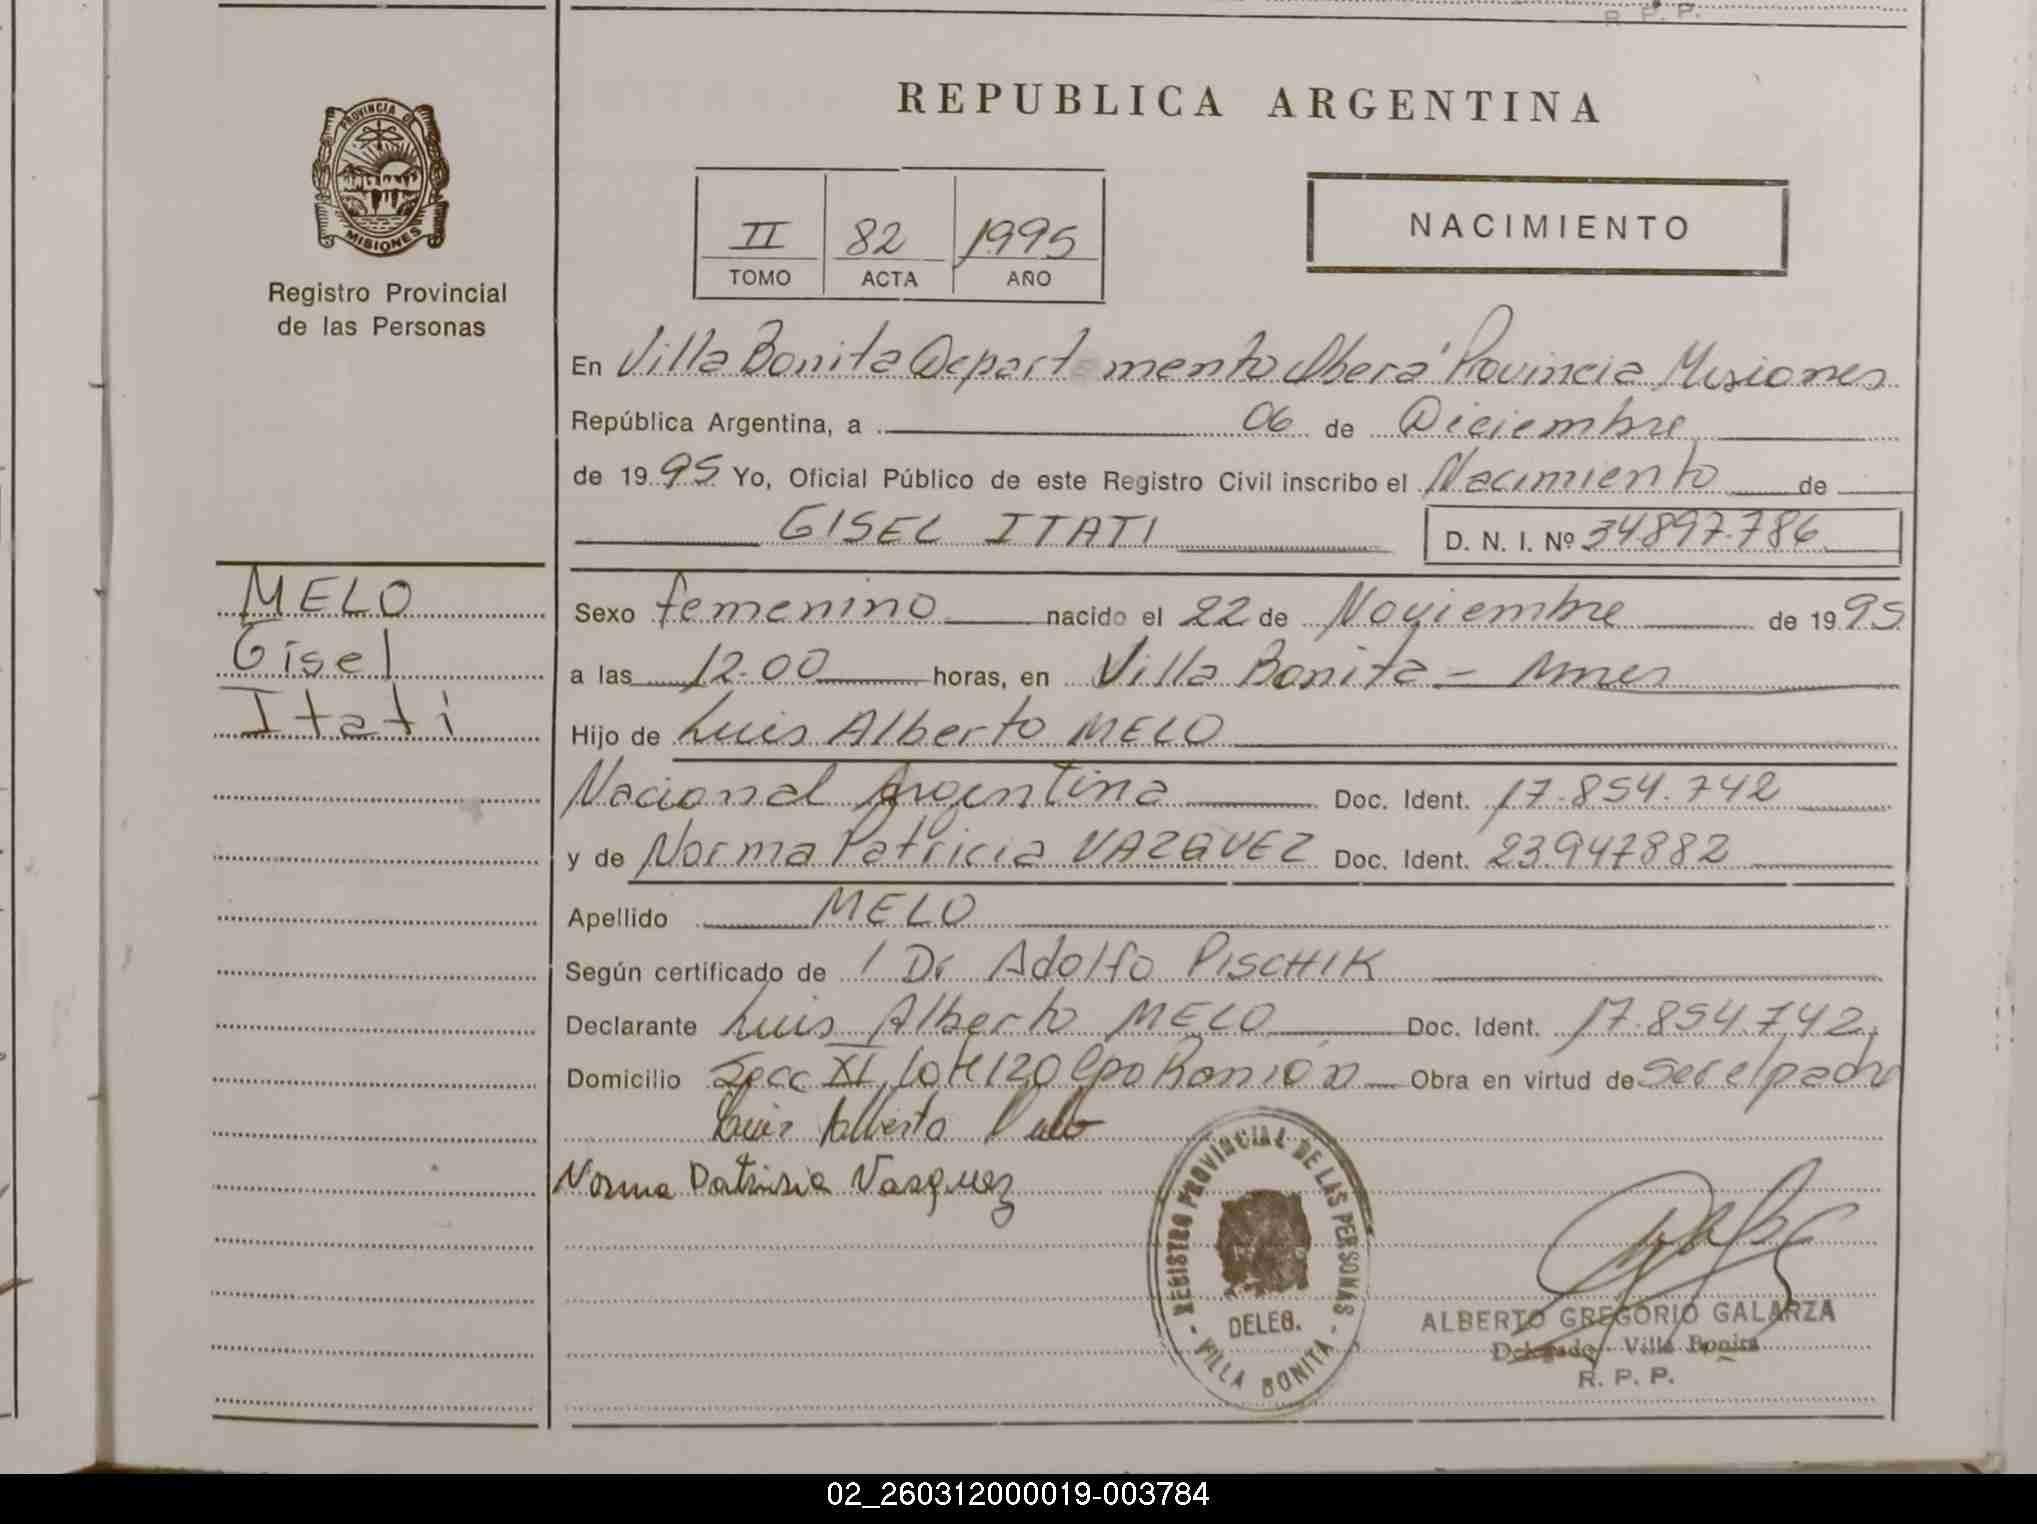 R. P. P.
PROVINCIA DE
MISIONES
Registro Provincial
de las Personas
REPUBLICA ARGENTINA
II 82 1995
TOMO ACTA AÑO
NACIMIENTO
En Villa Bonita Departamento Oberá Provincia Misiones
República Argentina, a 06 de Diciembre
de 1995 Yo, Oficial Público de este Registro Civil inscribo el Nacimiento de
GISEL ITATI D. N. I. Nº 34897.786
MELO
Gisel
Itatí
Sexo femenino nacido el 22 de Noviembre de 1995
a las 12.00 horas, en Villa Bonita - Mnes
Hijo de Luis Alberto MELO
Nacional Argentina Doc. Ident. 17.854.742
y de Norma Patricia VAZQUEZ Doc. Ident. 23.947882
Apellido MELO
Según certificado de / Dr Adolfo PISCHIK
Declarante Luis Alberto MELO Doc. Ident. 17.854.742,
Domicilio Secc XI, lote 120 Cpo Ramón Obra en virtud de ser el padre
Luis Alberto Melo
Norma Patrisia Vasquez
REGISTRO PROVINCIAL DE LAS PERSONAS
DELEG.
- VILLA BONITA -
ALBERTO GREGORIO GALARZA
Delegado - Villa Bonita
R. P. P.
02_260312000019-003784